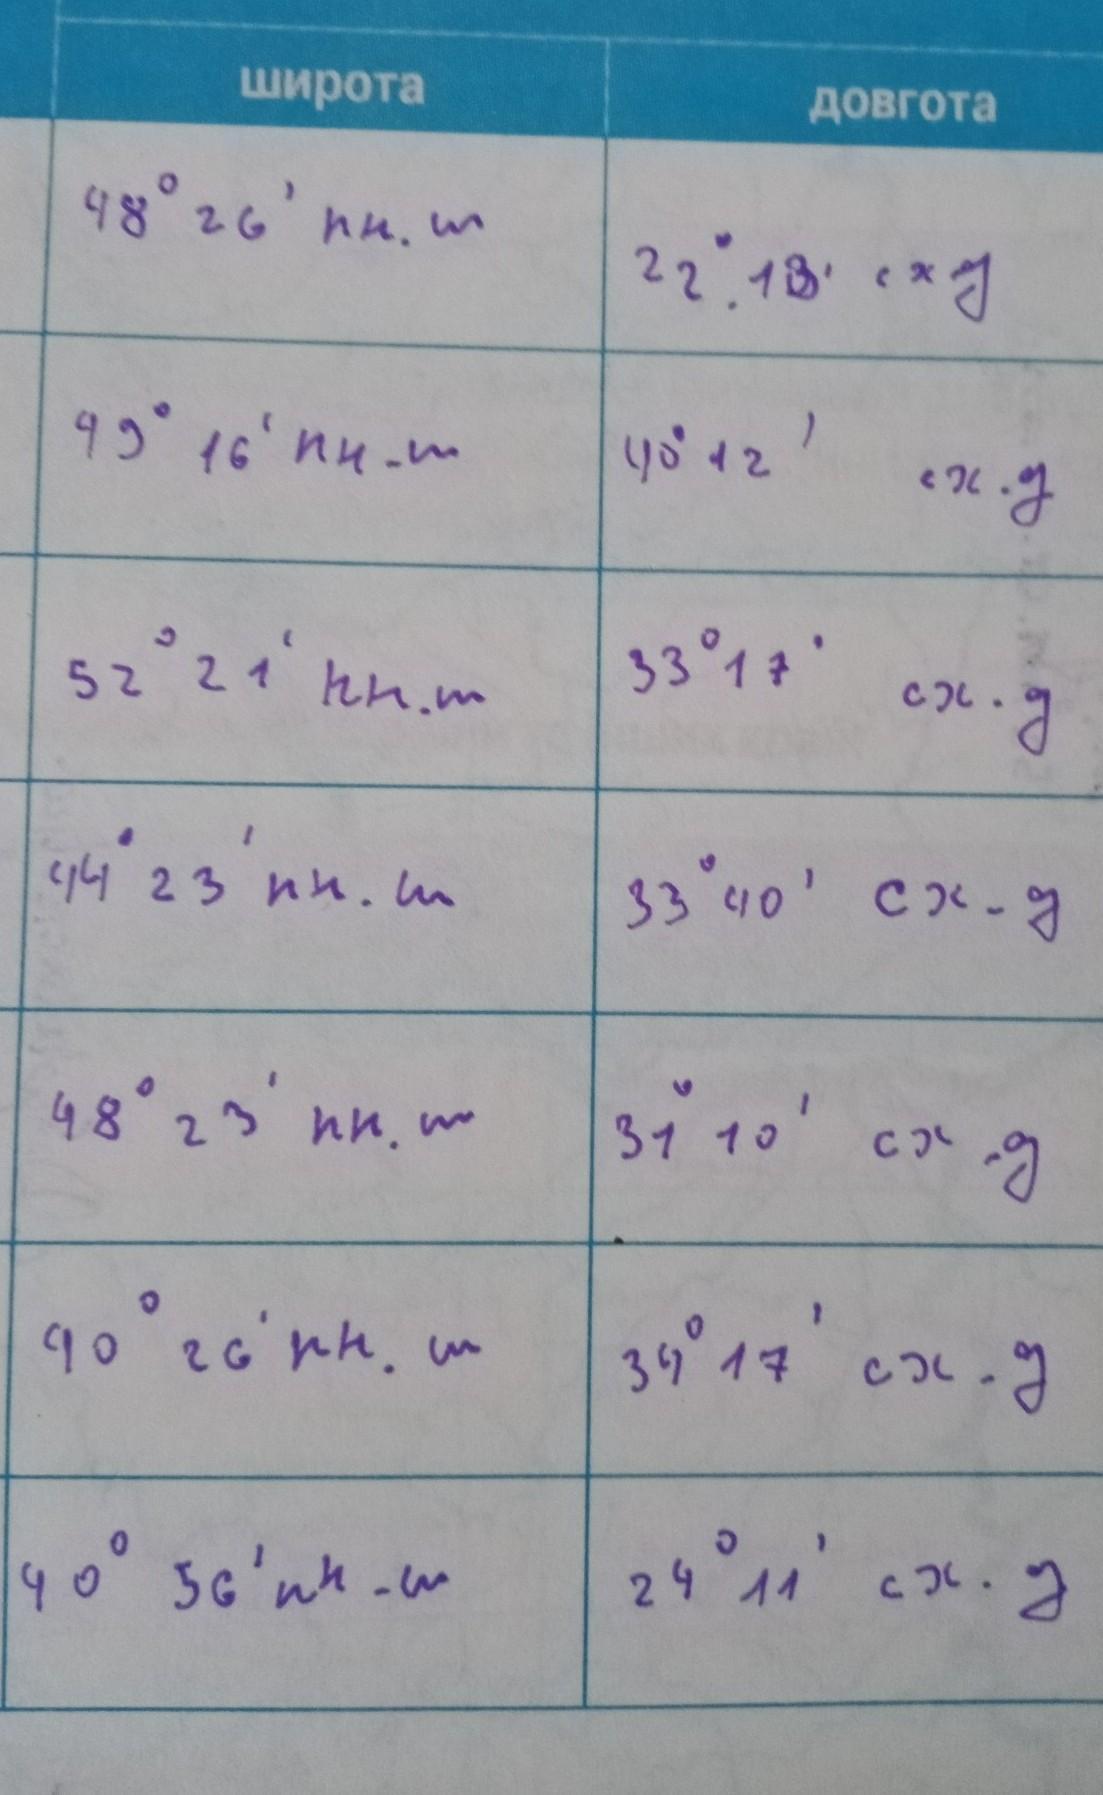 широта довгота
48° 26' пн. ш 22°.13' сх д
49° 16' пн. ш 40° 12' сх. д
52° 21' пн. ш 33° 17' сх. д
44° 23' пн. ш 33° 40' сх. д
48° 23' пн. ш 31° 10' сх. д
40° 26' пн. ш 34° 17' сх. д
40° 56' пн. ш 24° 11' сх. д